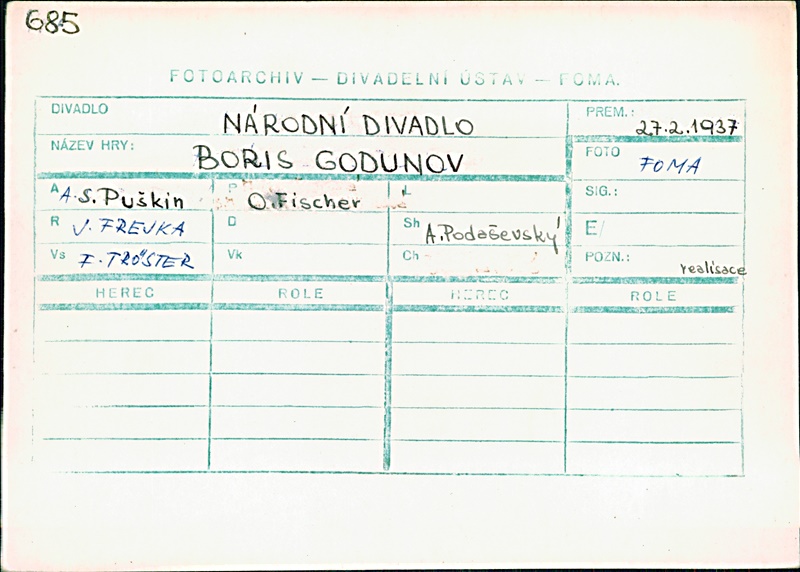 685
FOTOARCHIV — DIVADELNÍ ÚSTAV — FOMA.
DIVADLO NÁRODNÍ DIVADLO PREM.: 27.2.1937
NÁZEV HRY: BORIS GODUNOV FOTO FOMA
A A.S. Puškin P O. Fischer L SIG.:
R J. FREJKA D Sh A. Podaševský E/
Vs F. TRÖSTER Vk Ch POZN.: realisace
HEREC ROLE HEREC ROLE